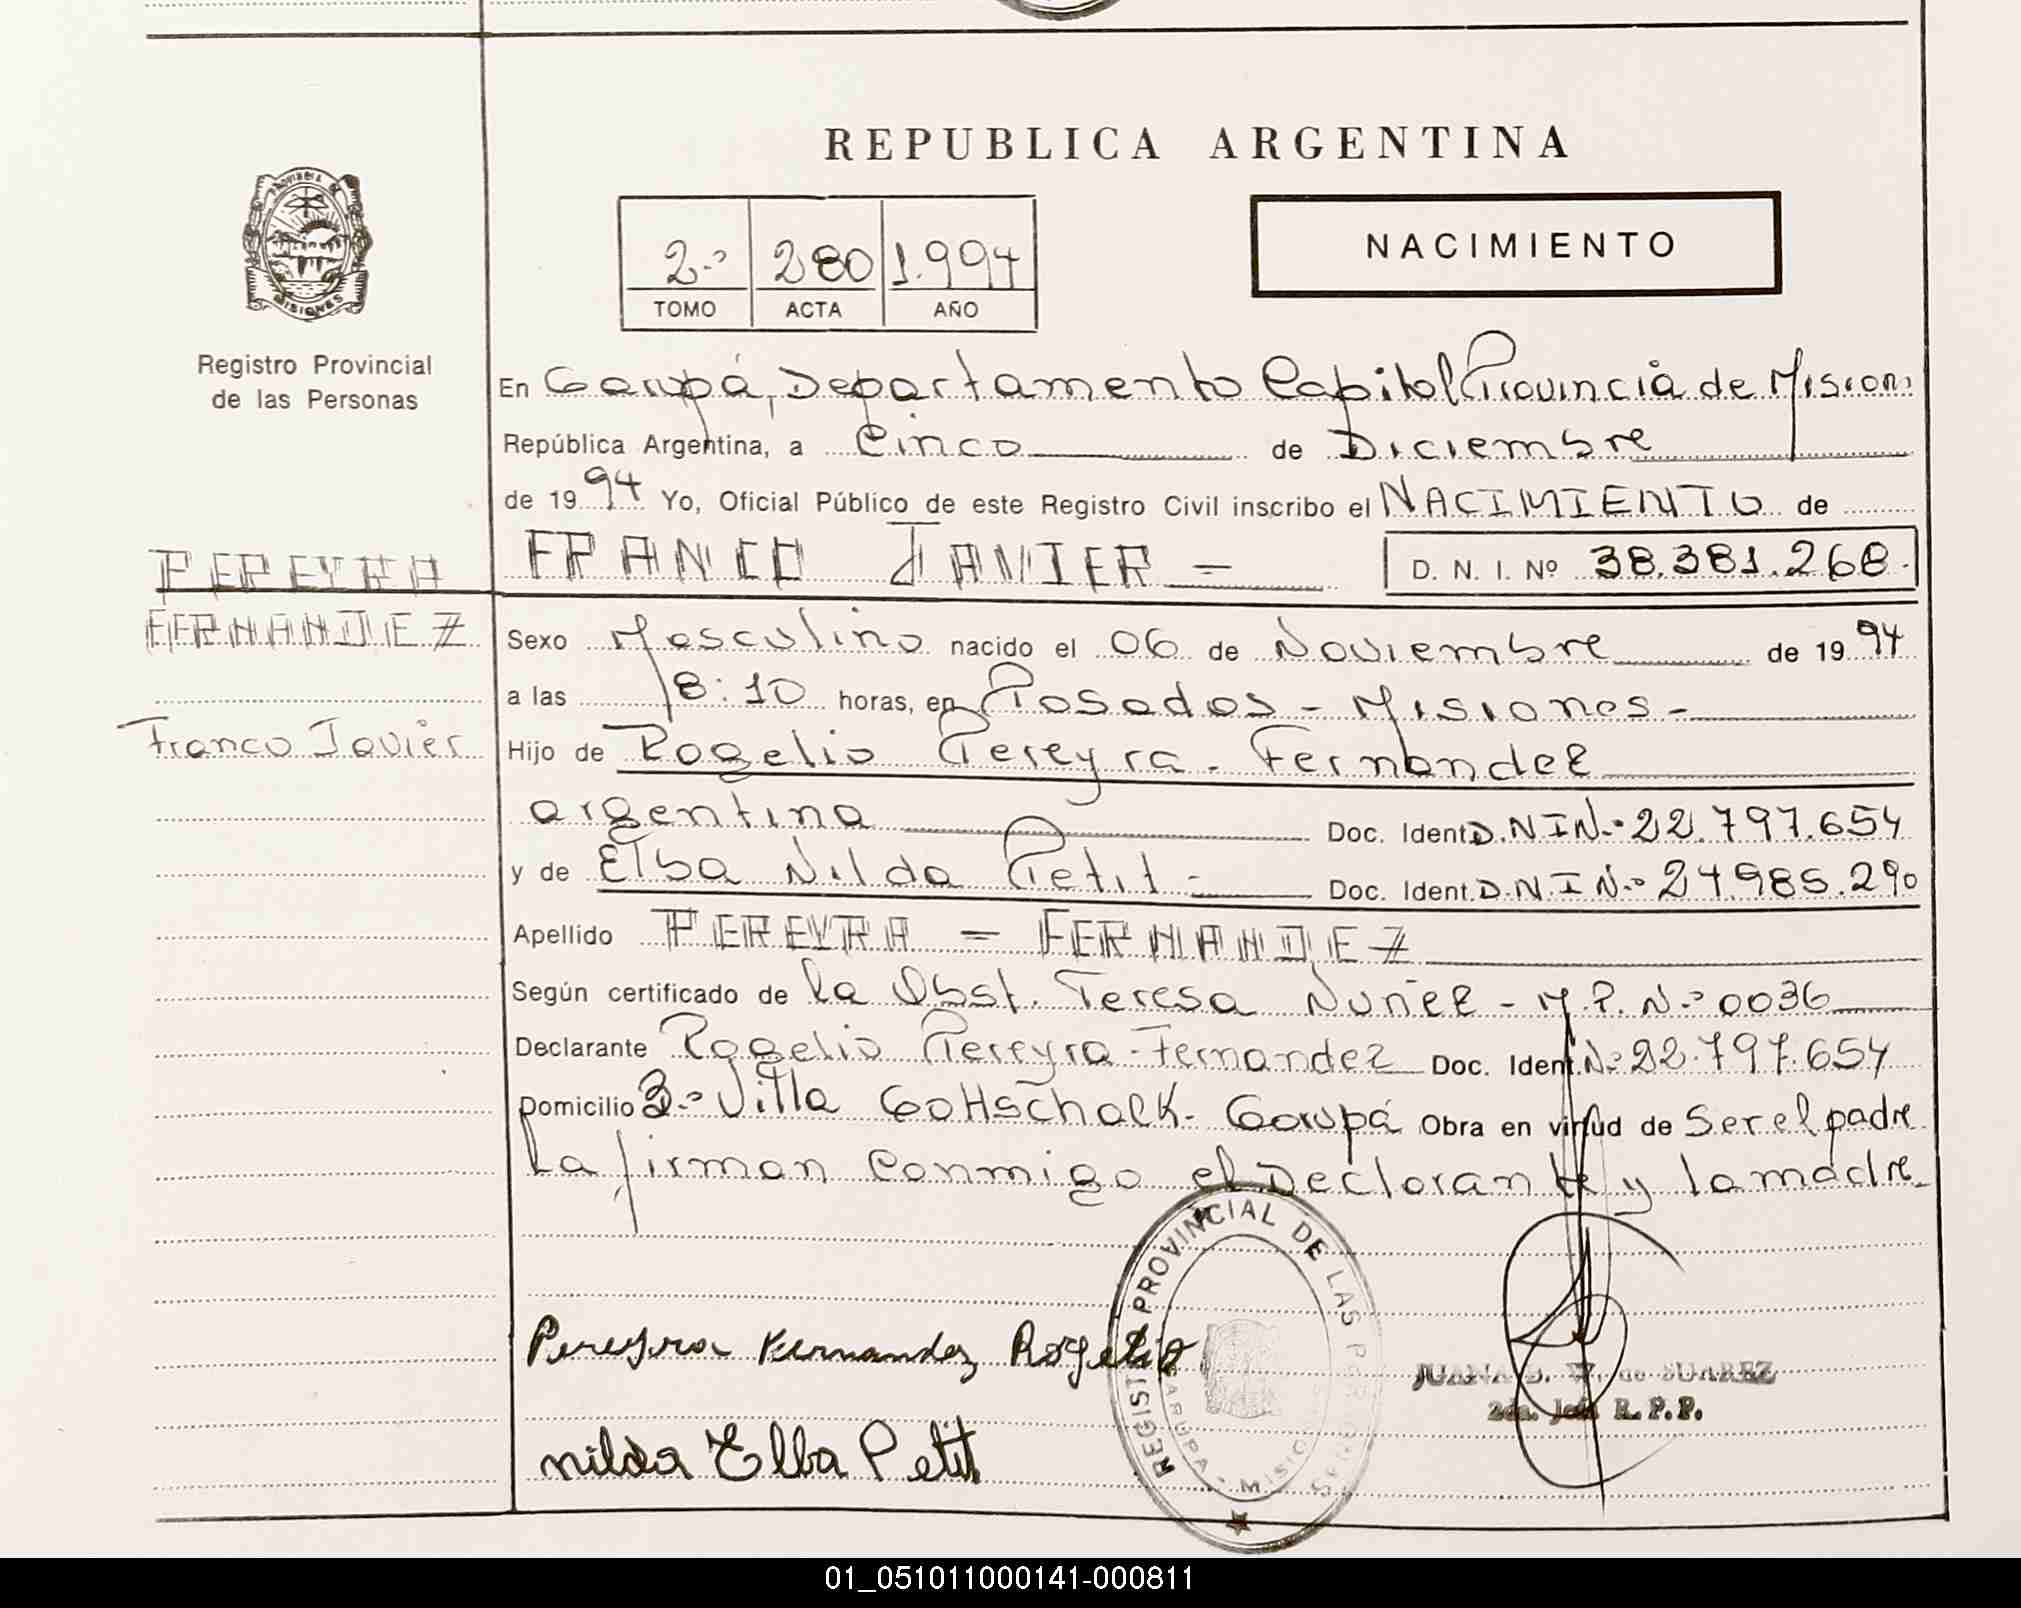 REPUBLICA ARGENTINA
PROVINCIA DE
MISIONES
Registro Provincial
de las Personas
2.º 280 1.994
TOMO ACTA AÑO
NACIMIENTO
En Garupá, Departamento Capital Provincia de Mision
República Argentina, a Cinco de Diciembre
de 1994 Yo, Oficial Público de este Registro Civil inscribo el NACIMIENTO de
PEREYRA
FERNANDEZ
Franco Javier
FRANCO JAVIER =
D. N. I. Nº 38.381.268.
Sexo Masculino nacido el 06 de Noviembre de 1994
a las 18:10 horas, en Posadas - Misiones -
Hijo de Rogelio Pereyra - Fernandez
argentina Doc. Ident. D.N.I N.º 22.797.654
y de Elba Nilda Petit - Doc. Ident. D.N.I N.º 24.985.290
Apellido PEREYRA = FERNANDEZ
Según certificado de la Obst. Teresa Nuñez - M.P. N.º 0036
Declarante Rogelio Pereyra - Fernandez Doc. Ident. N.º 22.797.654
Domicilio 3.º Villa Gottschalk - Garupá Obra en virtud de Ser el padre
La firman conmigo el Declarante y la madre.
Pereyra Fernandez Rogelio
nilda Elba Petit
REGISTRO PROVINCIAL DE LAS PERSONAS
GARUPA - MISIONES
JUANA B. W. de SUAREZ
2da. Jefa R.P.P.
01_051011000141-000811